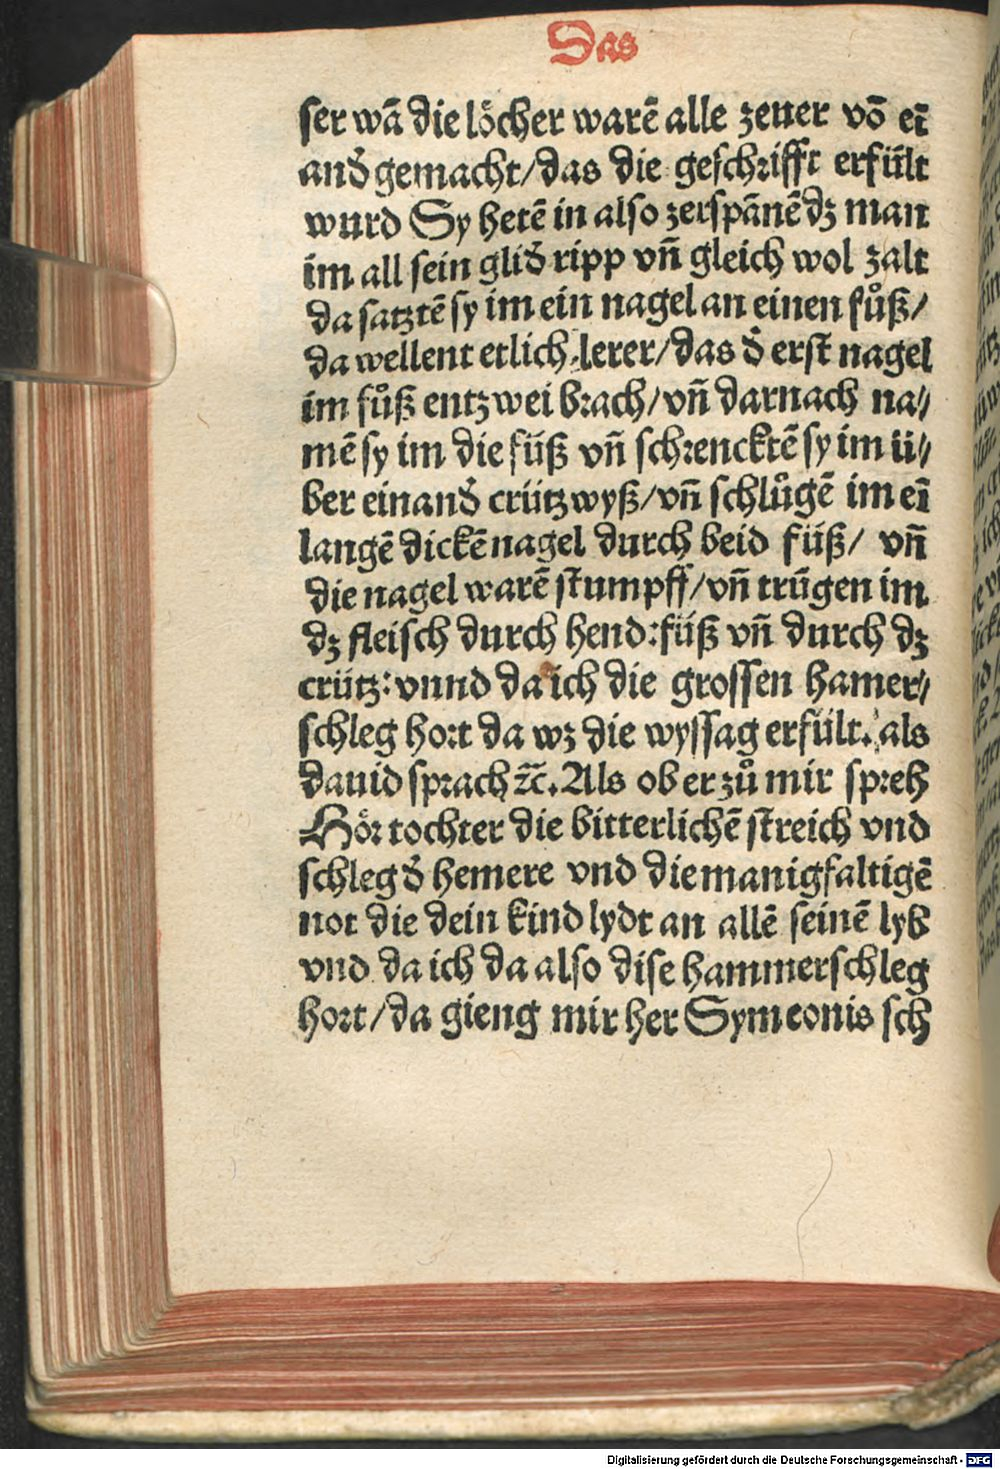 Das
ser wã die löcher warẽ alle zeuer võ eĩ
and̾ gemacht/das die geschrifft erfült
wurd Sy hetẽ in also zerspãnẽ dz man
im all sein glid̾ ripp vñ gleich wol zalt
da satztẽ sy im ein nagel an einen fůß/
da wellent etlich lerer/das d̾ erst nagel
im fůß entzwei brach/vñ darnach na⸗
mẽ sy im die füß vñ schrencktẽ sy im ü⸗
ber einand̾ crützwyß/vñ schlůgẽ im eĩ
langẽ dickẽ nagel durch beid füß/ vñ
die nagel warẽ stumpff/vñ trůgen im
dz fleisch durch hend:füß vñ durch dz
crütz:vnnd da ich die grossen hamer⸗
schleg hort da wz die wyssag erfült. als
dauid sprach ⁊c̃. Als ob er zů mir spreh
Hör tochter die bitterlichẽ streich vnd
schleg d̾ hemere vnd die manigfaltigẽ
not die dein kind lydt an allẽ seinẽ lyb
vnd da ich da also dise hammerschleg
hort/da gieng mir her Symeonis sch
Digitalisierung gefördert durch die Deutsche Forschungsgemeinschaft - DFG